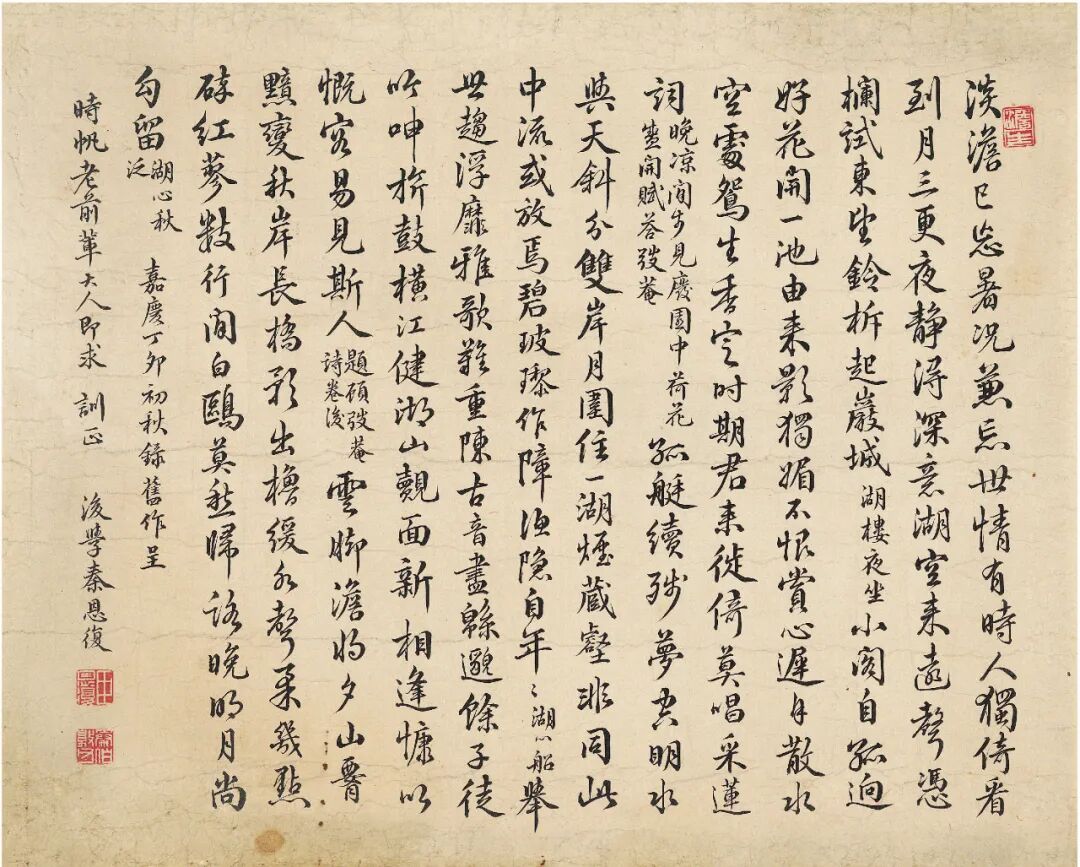 淡澹已忘暑況兼忘世情有時人獨倚看
到月三更夜靜得深意湖空来遠聲憑
欄試東望鈴柝起巖城湖樓夜坐小閣自孤迥
好花開一池由来影獨媚不恨賞心遲月散水
空處生香定时期君来徙倚莫唱采蓮
詞晚凉閒步見慶園中荷花盛開賦答弢菴孤艇續殘夢空明水
與天斜分雙岸月圍住一湖煙藏壑非同此
中流或放焉碧玻瓈作障漁隐自年々湖船舉
世趨浮靡雅歌難重陳古音盡緜邈餘子徒
吟呻旂鼓橫江健湖山覿面新相逢慷以
慨容易見斯人題顧弢菴詩卷後雲脚澹將夕山脣
黯變秋岸長橋影出櫓緩水聲柔幾點
疎紅蓼數行間白鷗莫愁歸路晚明月尚
勾留湖心秋泛 嘉慶丁卯初秋錄舊作呈
時帆老前輩大人即求 訓正 後學秦恩復